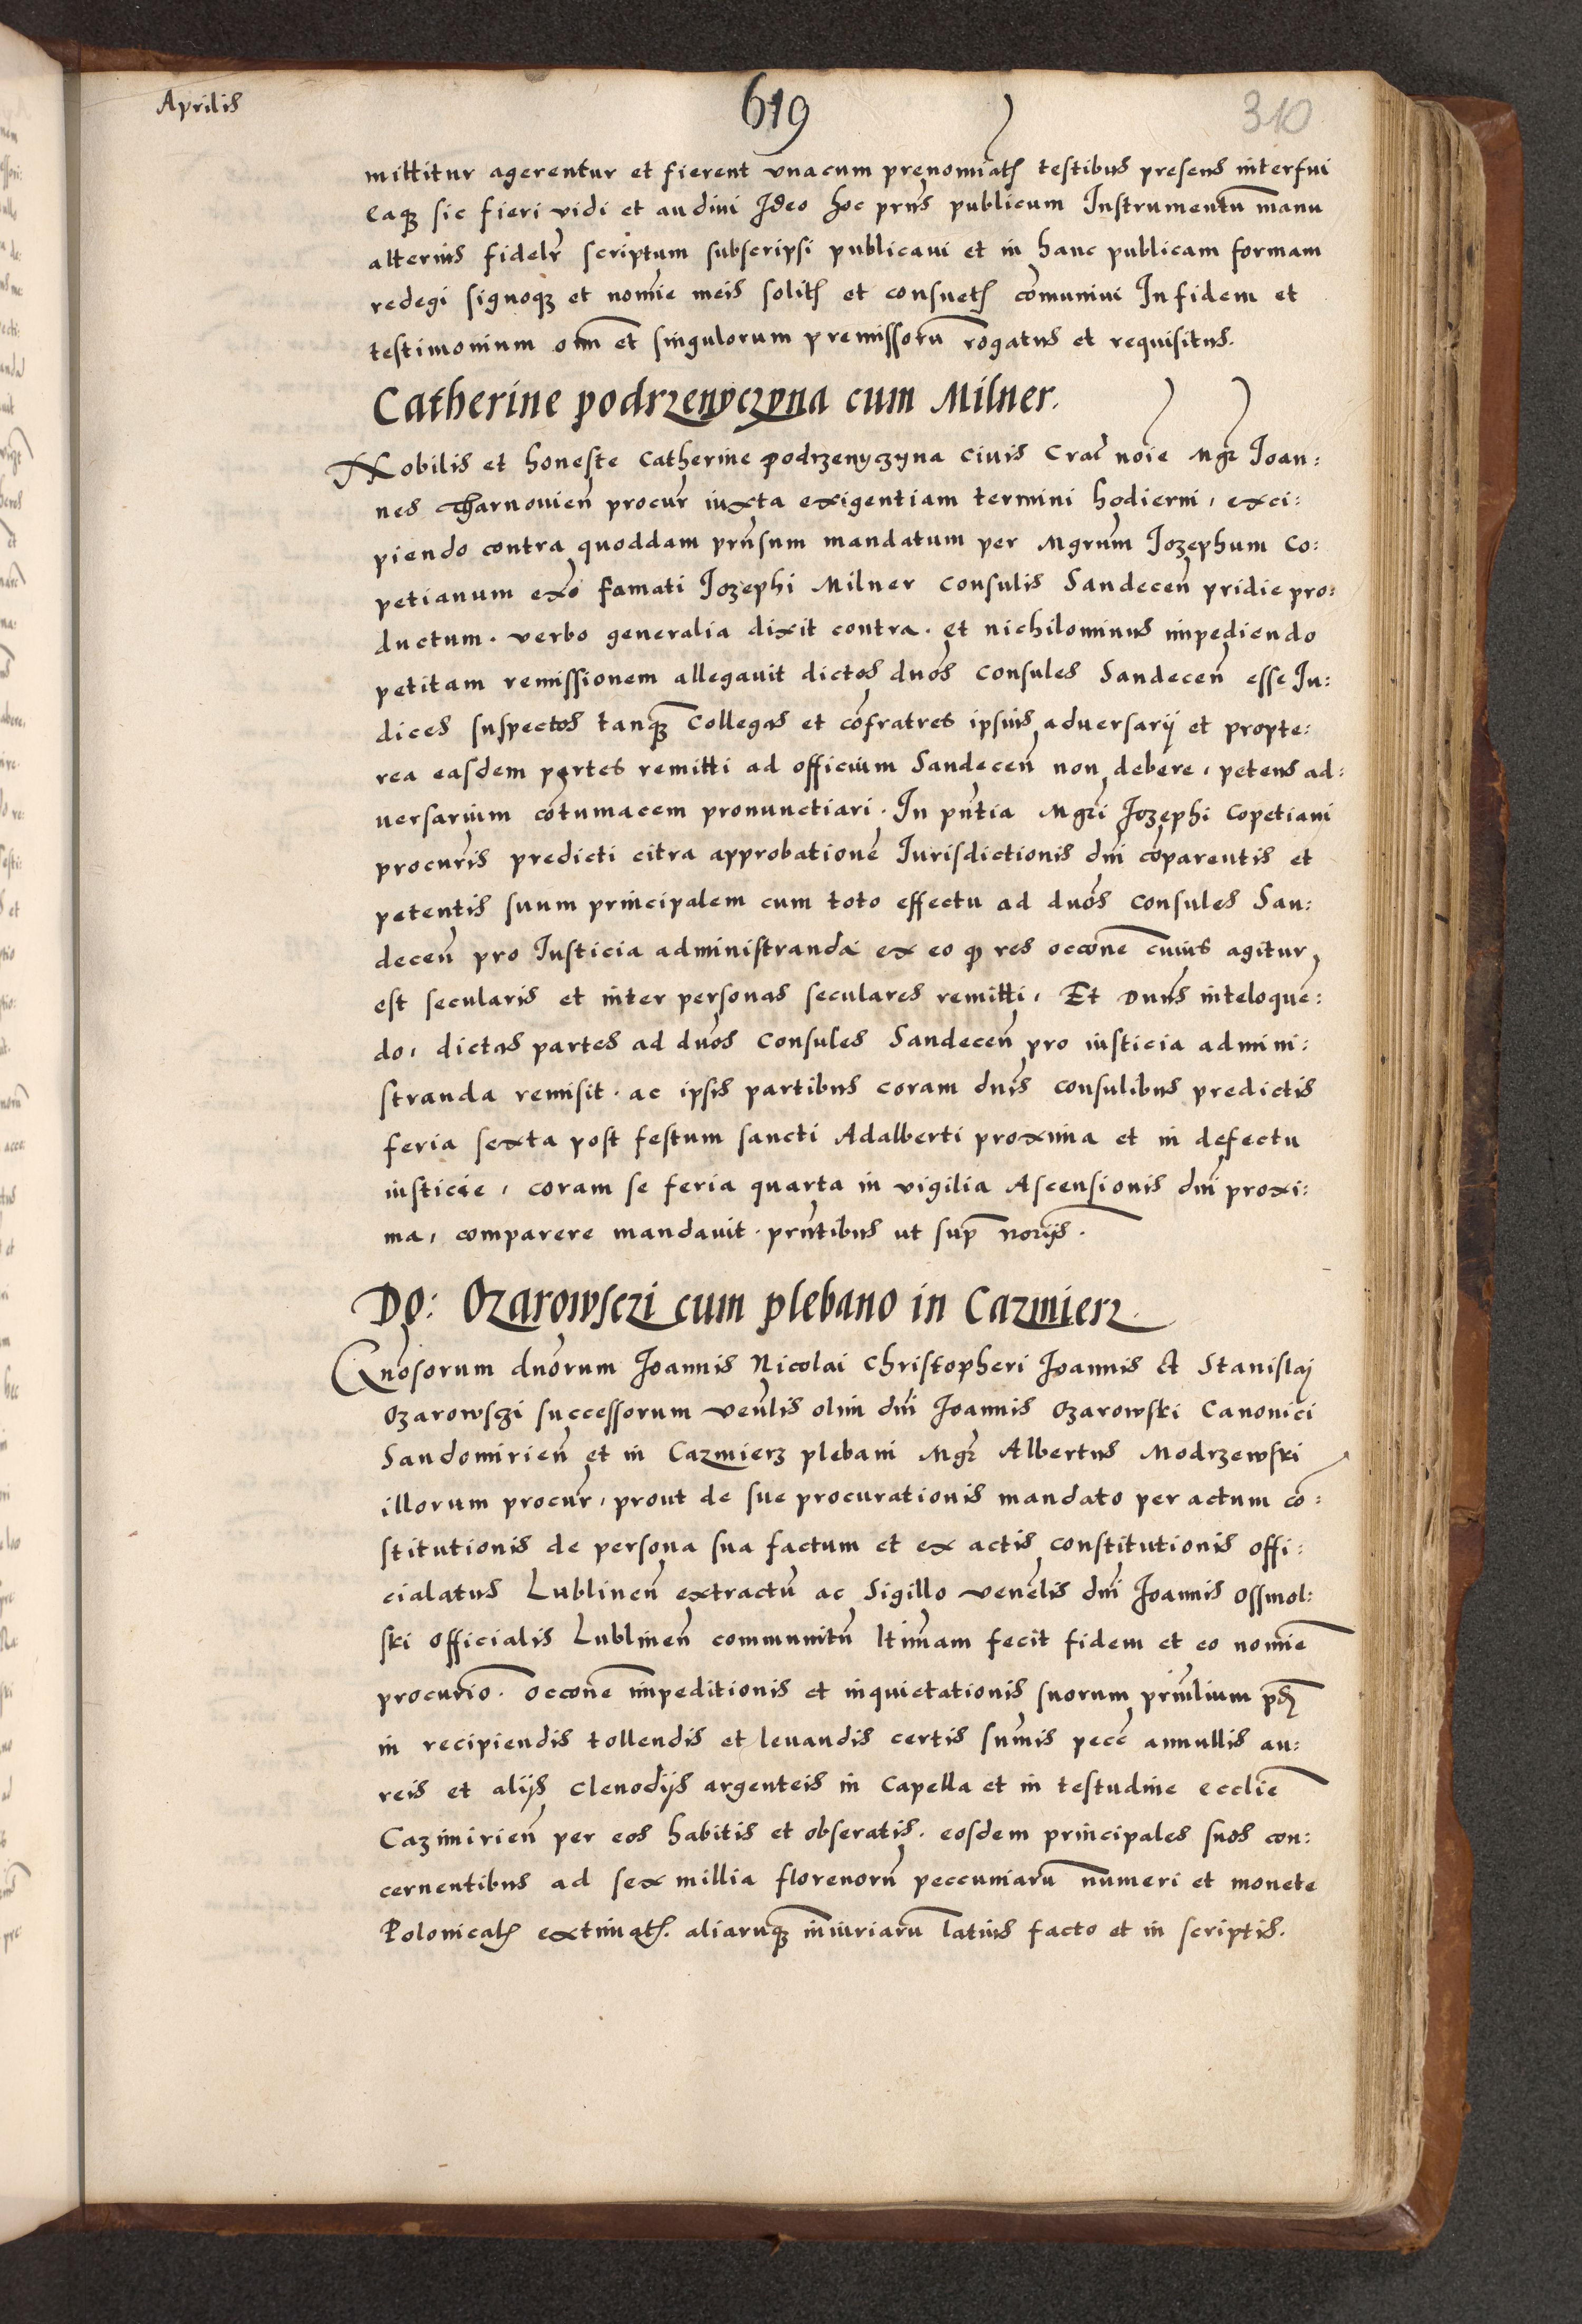 Aprilis
619
310
mittitur agerentur et fierent vnacum prenomiatꝭ testibus presens interfui
Eaqꝫ sic fieri vidi et audiui Ideo hoc prns publicum Instrumentũ manu
alterius fidelr scriptum subscripsi publicaui et in hanc publicam formam
redegi signoqꝫ et nomie meis solitꝭ et consuetꝭ cõmuniui In fidem et
testimonium oim et singulorum premissorũ rogatus et requisitus.
Catherine podrzenyczyna cum Milner.
Nobilis et honeste Catherine podrzenyczyna ciuis Crac noie Mgr Ioan:
nes Tharnouien procur iuxta exigentiam termini hodierni, exci:
piendo contra quoddam prnsum mandatum per Mgrum Iozephum Co:
petianum exo famati Iozephi Milner consulis Sandecen pridie pro:
ductum. verbo generalia dixit contra. et nichilominus impediendo
petitam remissionem allegauit dictos dnos consules Sandecen esse Iu:
dices suspectos tanqꝫ Collegas et cõfratres ipsius aduersarij et propte:
rea easdem partes remitti ad officium Sandecen non debere, petens ad:
uersarium cõtumacem pronunctiari. In pntia Mgri Iozephi Copetiani
procuris predicti citra approbationẽ Iurisdictionis dni cõparentis et
petentis suum principalem cum toto effectu ad dnos consules San:
decen pro Iusticia administranda ex eo ꝙ res occone cuius agitur
est secularis et inter personas seculares remitti, Et Dnns inteloquẽ:
do, dictas partes ad dnos Consules Sandecen pro iusticia admini:
stranda remisit. ac ipsis partibus coram dnis consulibus predictis
feria sexta post festum sancti Adalberti proxima et in defectu
iusticie, coram se feria quarta in vigilia Ascensionis dni proxi:
ma, comparere mandauit. prntibus ut sup norijs.
Do: Ozarowsczi cum plebano in Cazmierz
Gnosorum dnorum Ioannis Nicolai Christopheri Ioannis et Stanislaj
Ozarowsczi successorum venlis olim dni Ioannis Ozarowski Canonici
Sandomirien et in Cazmierz plebani Mgr Albertus Modrzewski
illorum procur, prout de sue procurationis mandato per actum cõ:
stitutionis de persona sua factum et ex actis constitutionis offi:
cialatus Lublinen extractũ ac Sigillo venelis dni Ioannis Ossmol:
ski officialis Lublinen communitũ ltimam fecit fidem et eo nomie
procurio. occone impeditionis et inquietationis suorum prinlium pdꝭ
in recipiendis tollendis et leuandis certis sumis pecc annullis au:
reis et alijs clenodijs argenteis in Capella et in testudine ecclie
Cazimirien per eos habitis et obseratis. eosdem principales suos con:
cernentibus ad sex millia florenorũ peccuniarũ numeri et monete
Polonicalꝭ extimatꝭ. aliarũqꝫ iniuriarũ latius facto et in scriptis.